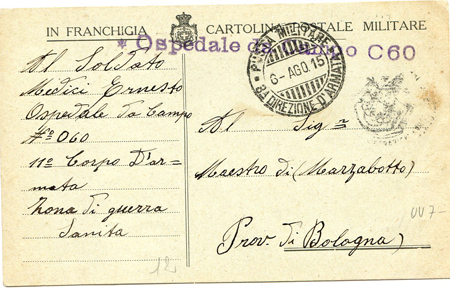 IN FRANCHIGIA
CARTOLINA POSTALE MILITARE
* Ospedale da Campo C60
POSTA MILITARE
6-AGO.15
3A DIREZIONE D'ARMATA
Al Soldato
Medici Ernesto
Ospedale da Campo
No 060
11o Corpo D'ar-
mata
Zona di guerra
Sanita
Al Sig r
Maestro di (Marzabotto)
Prov. di Bologna)
12